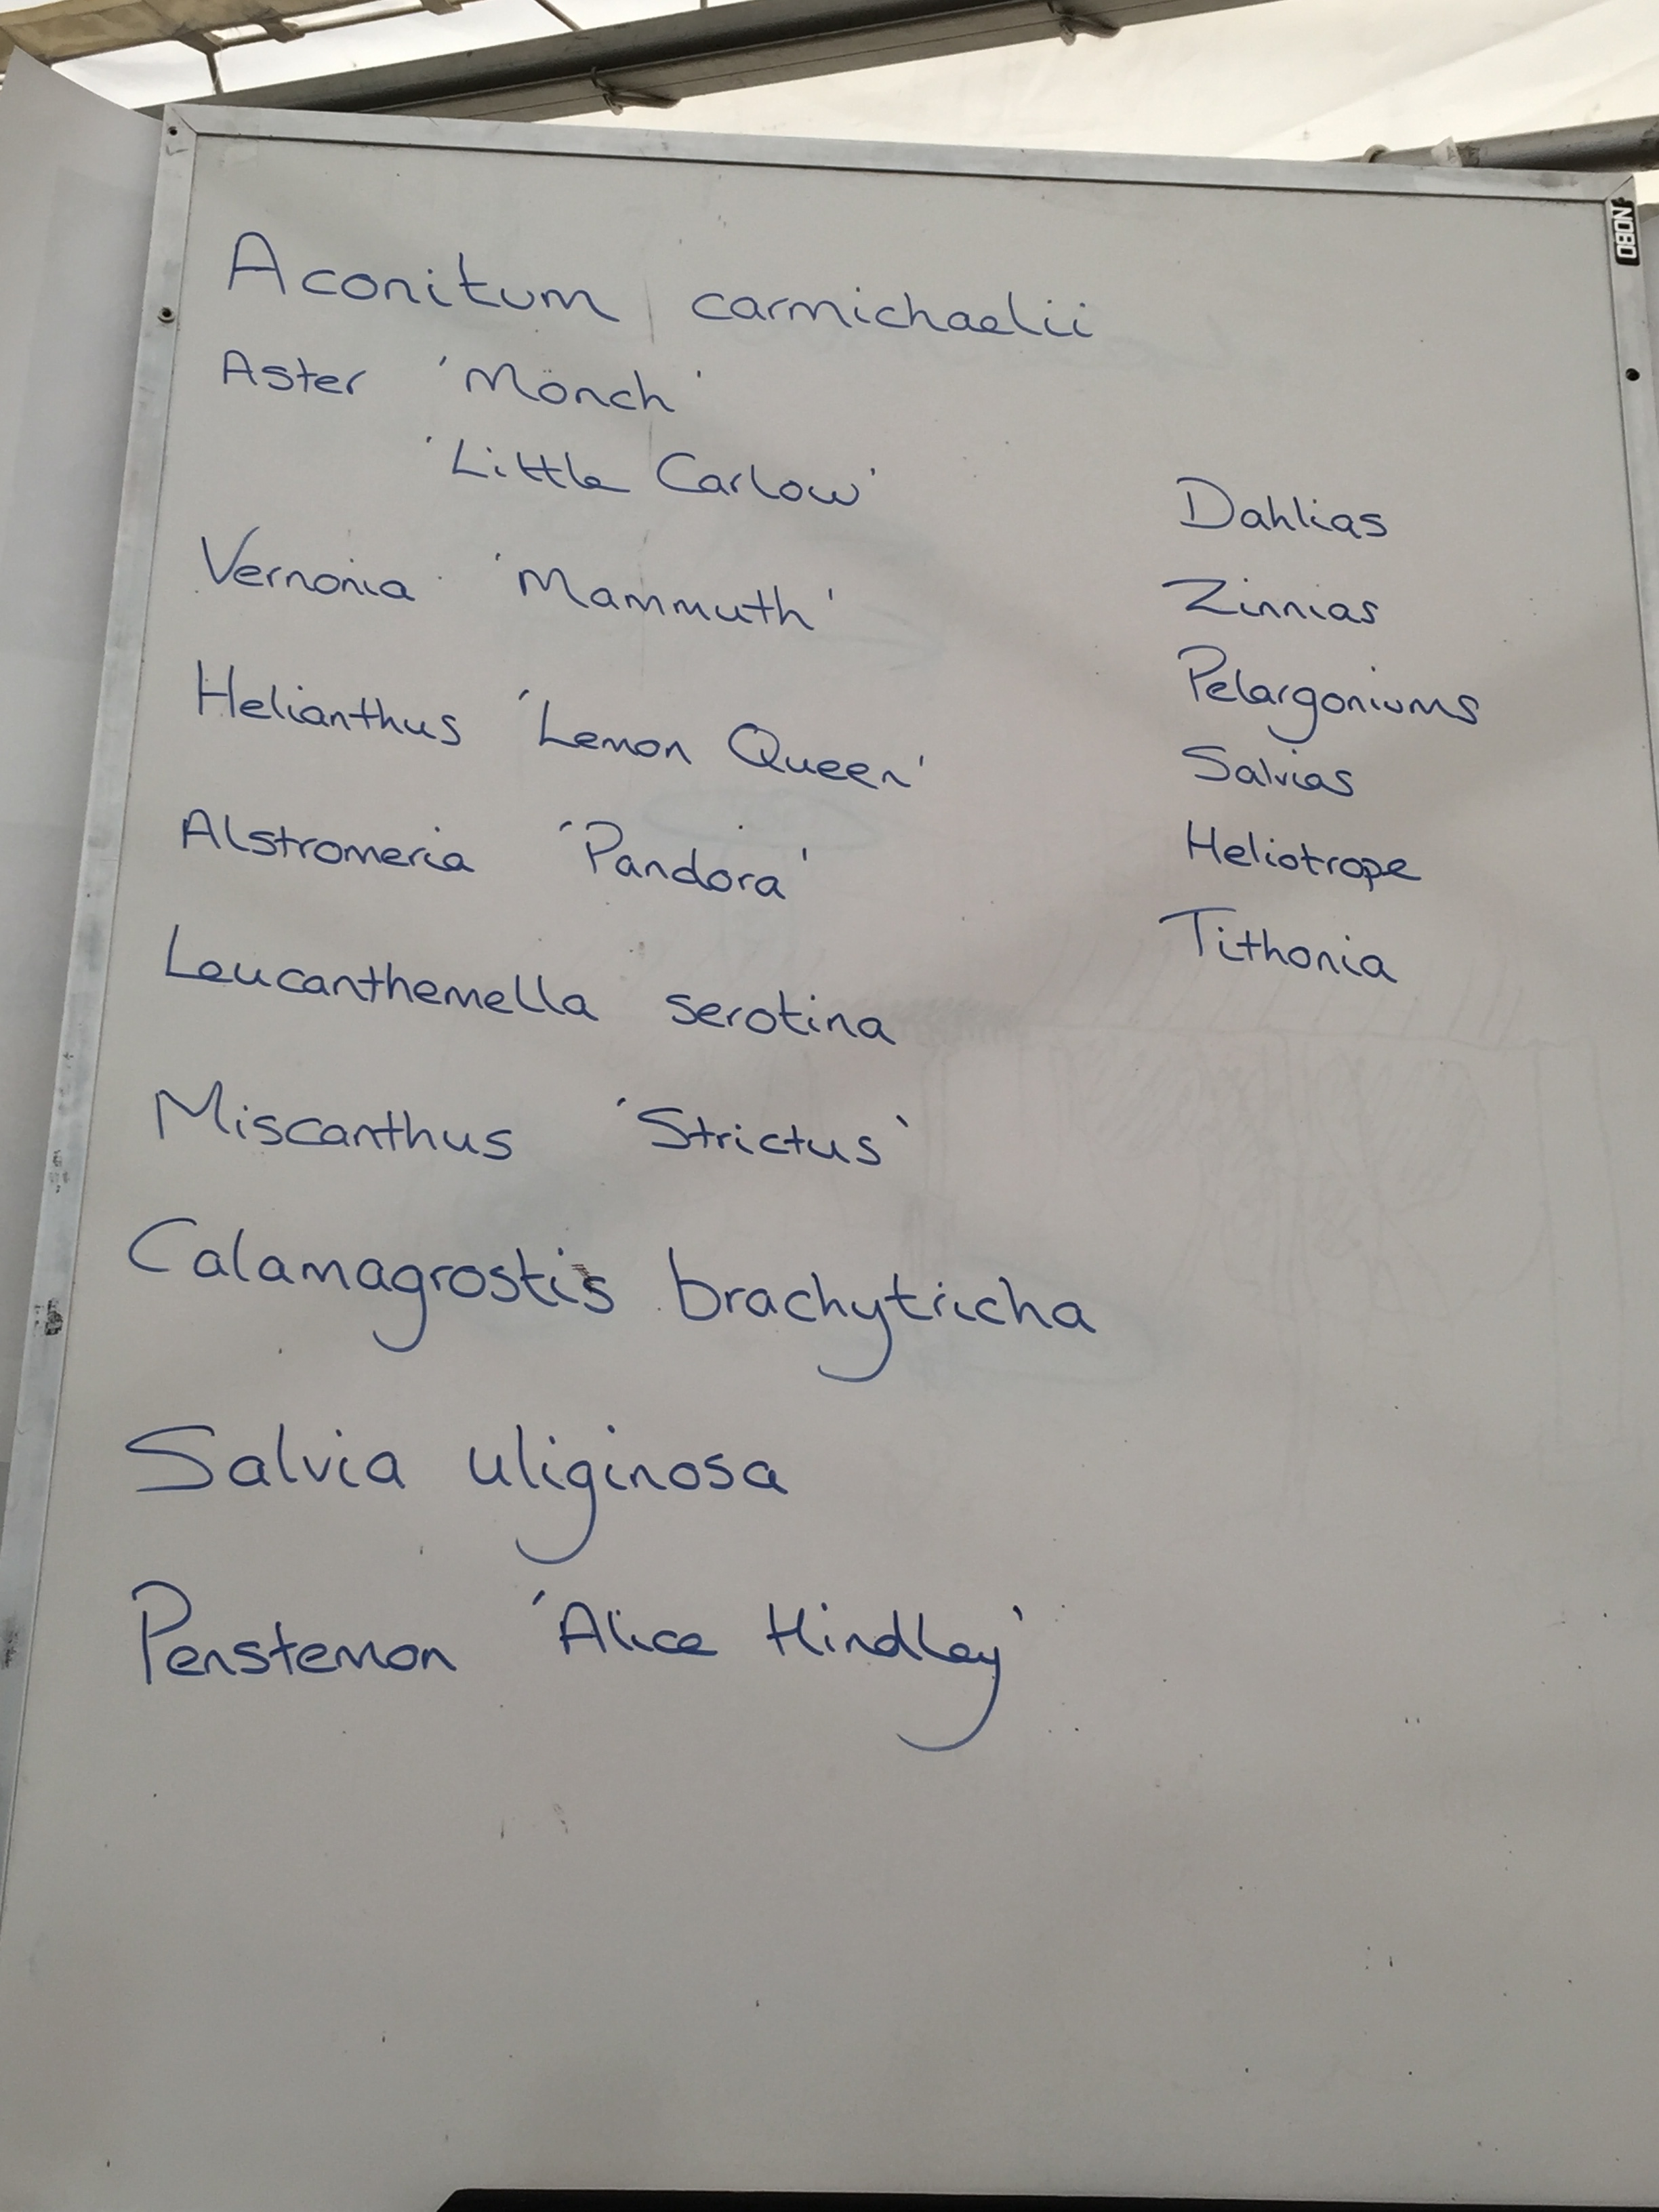 NOBO
Aconitum carmichaelii
Aster 'Mönch'
'Little Carlow'
Vernonia 'Mammuth'
Helianthus 'Lemon Queen'
Alstromeria 'Pandora'
Leucanthemella serotina
Miscanthus 'Strictus'
Calamagrostis brachytricha
Salvia uliginosa
Penstemon 'Alice Hindley'
Dahlias
Zinnias
Pelargoniums
Salvias
Heliotrope
Tithonia